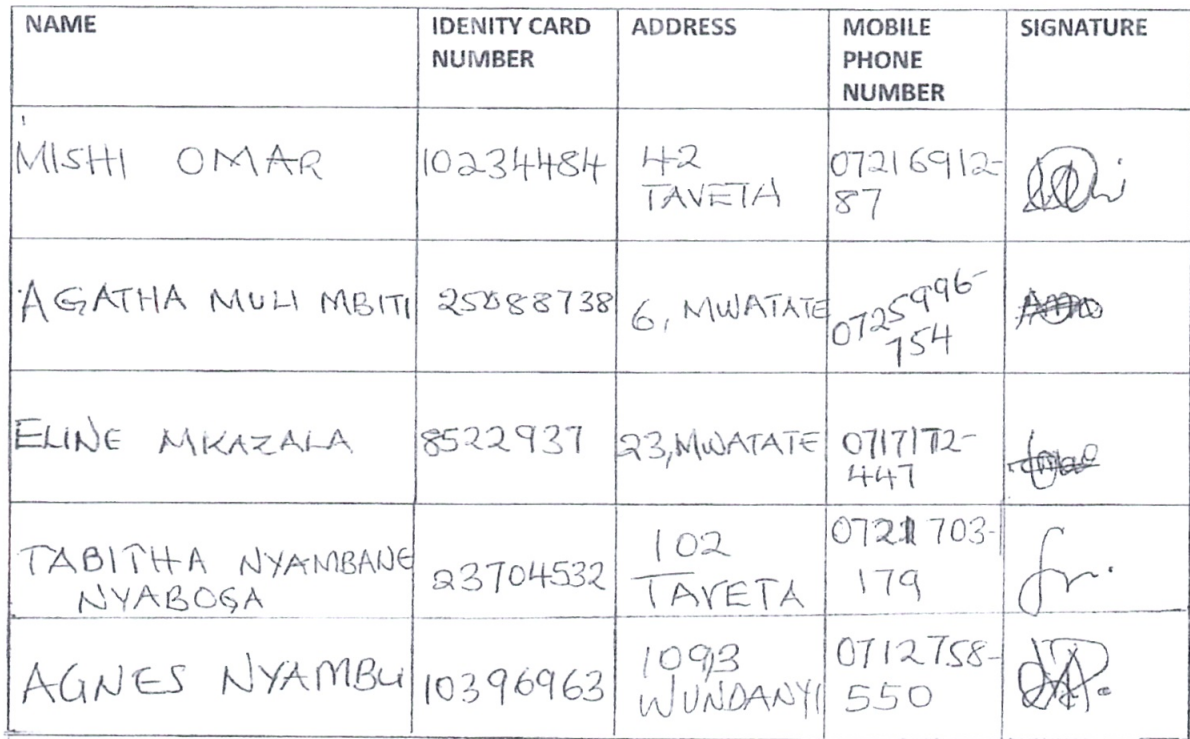 NAME IDENITY CARD NUMBER ADDRESS MOBILE PHONE NUMBER SIGNATURE
MISHI OMAR 10234484 42 TAVETA 07216912-87
AGATHA MULI MBITI 25088738 6, MWATATE 0725996-754
ELINE MKAZALA 8522937 23, MWATATE 0717172-447
TABITHA NYAMBANE NYABOGA 23704532 102 TAVETA 0721 703-179
AGNES NYAMBU 10396963 1093 WUNDANYI 0712758-550